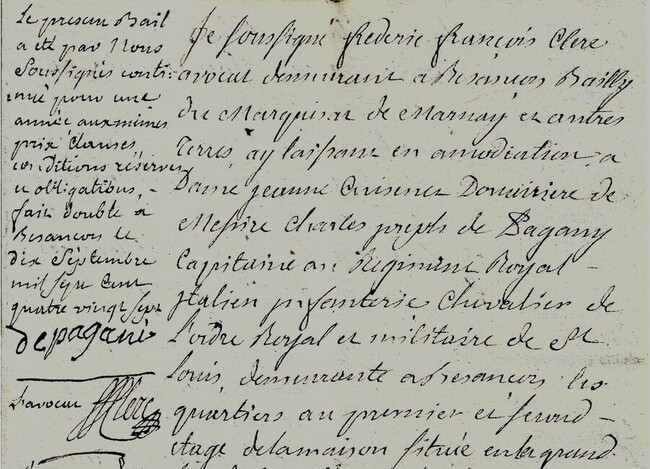 Le present Bail
a eté par Nous
Soussignés conti-
nué pour une
année aux mêmes
prix Clauses
conditions réserves
et obligations, -
fait double a
Besancon le
dix Septembre
mil sept Cent
quatre vingt sept
de pagani
L'avocat Clerc
Je soussigné frederic françois Clerc
avocat demeurant à Besancon Bailly
du Marquisat de Marnay et autres
Terres, ay laissant en amodiation a
Dame jeanne Cuisenez Douairiere de
Messire Charles joseph de Pagany
Capitaine au Regiment Royal -
jtalien jnfanterie Chevalier de
L'ordre Royal et militaire de St
louis, demeurante a besancon les
quartiers au premier et second -
etage de la maison située en la grand